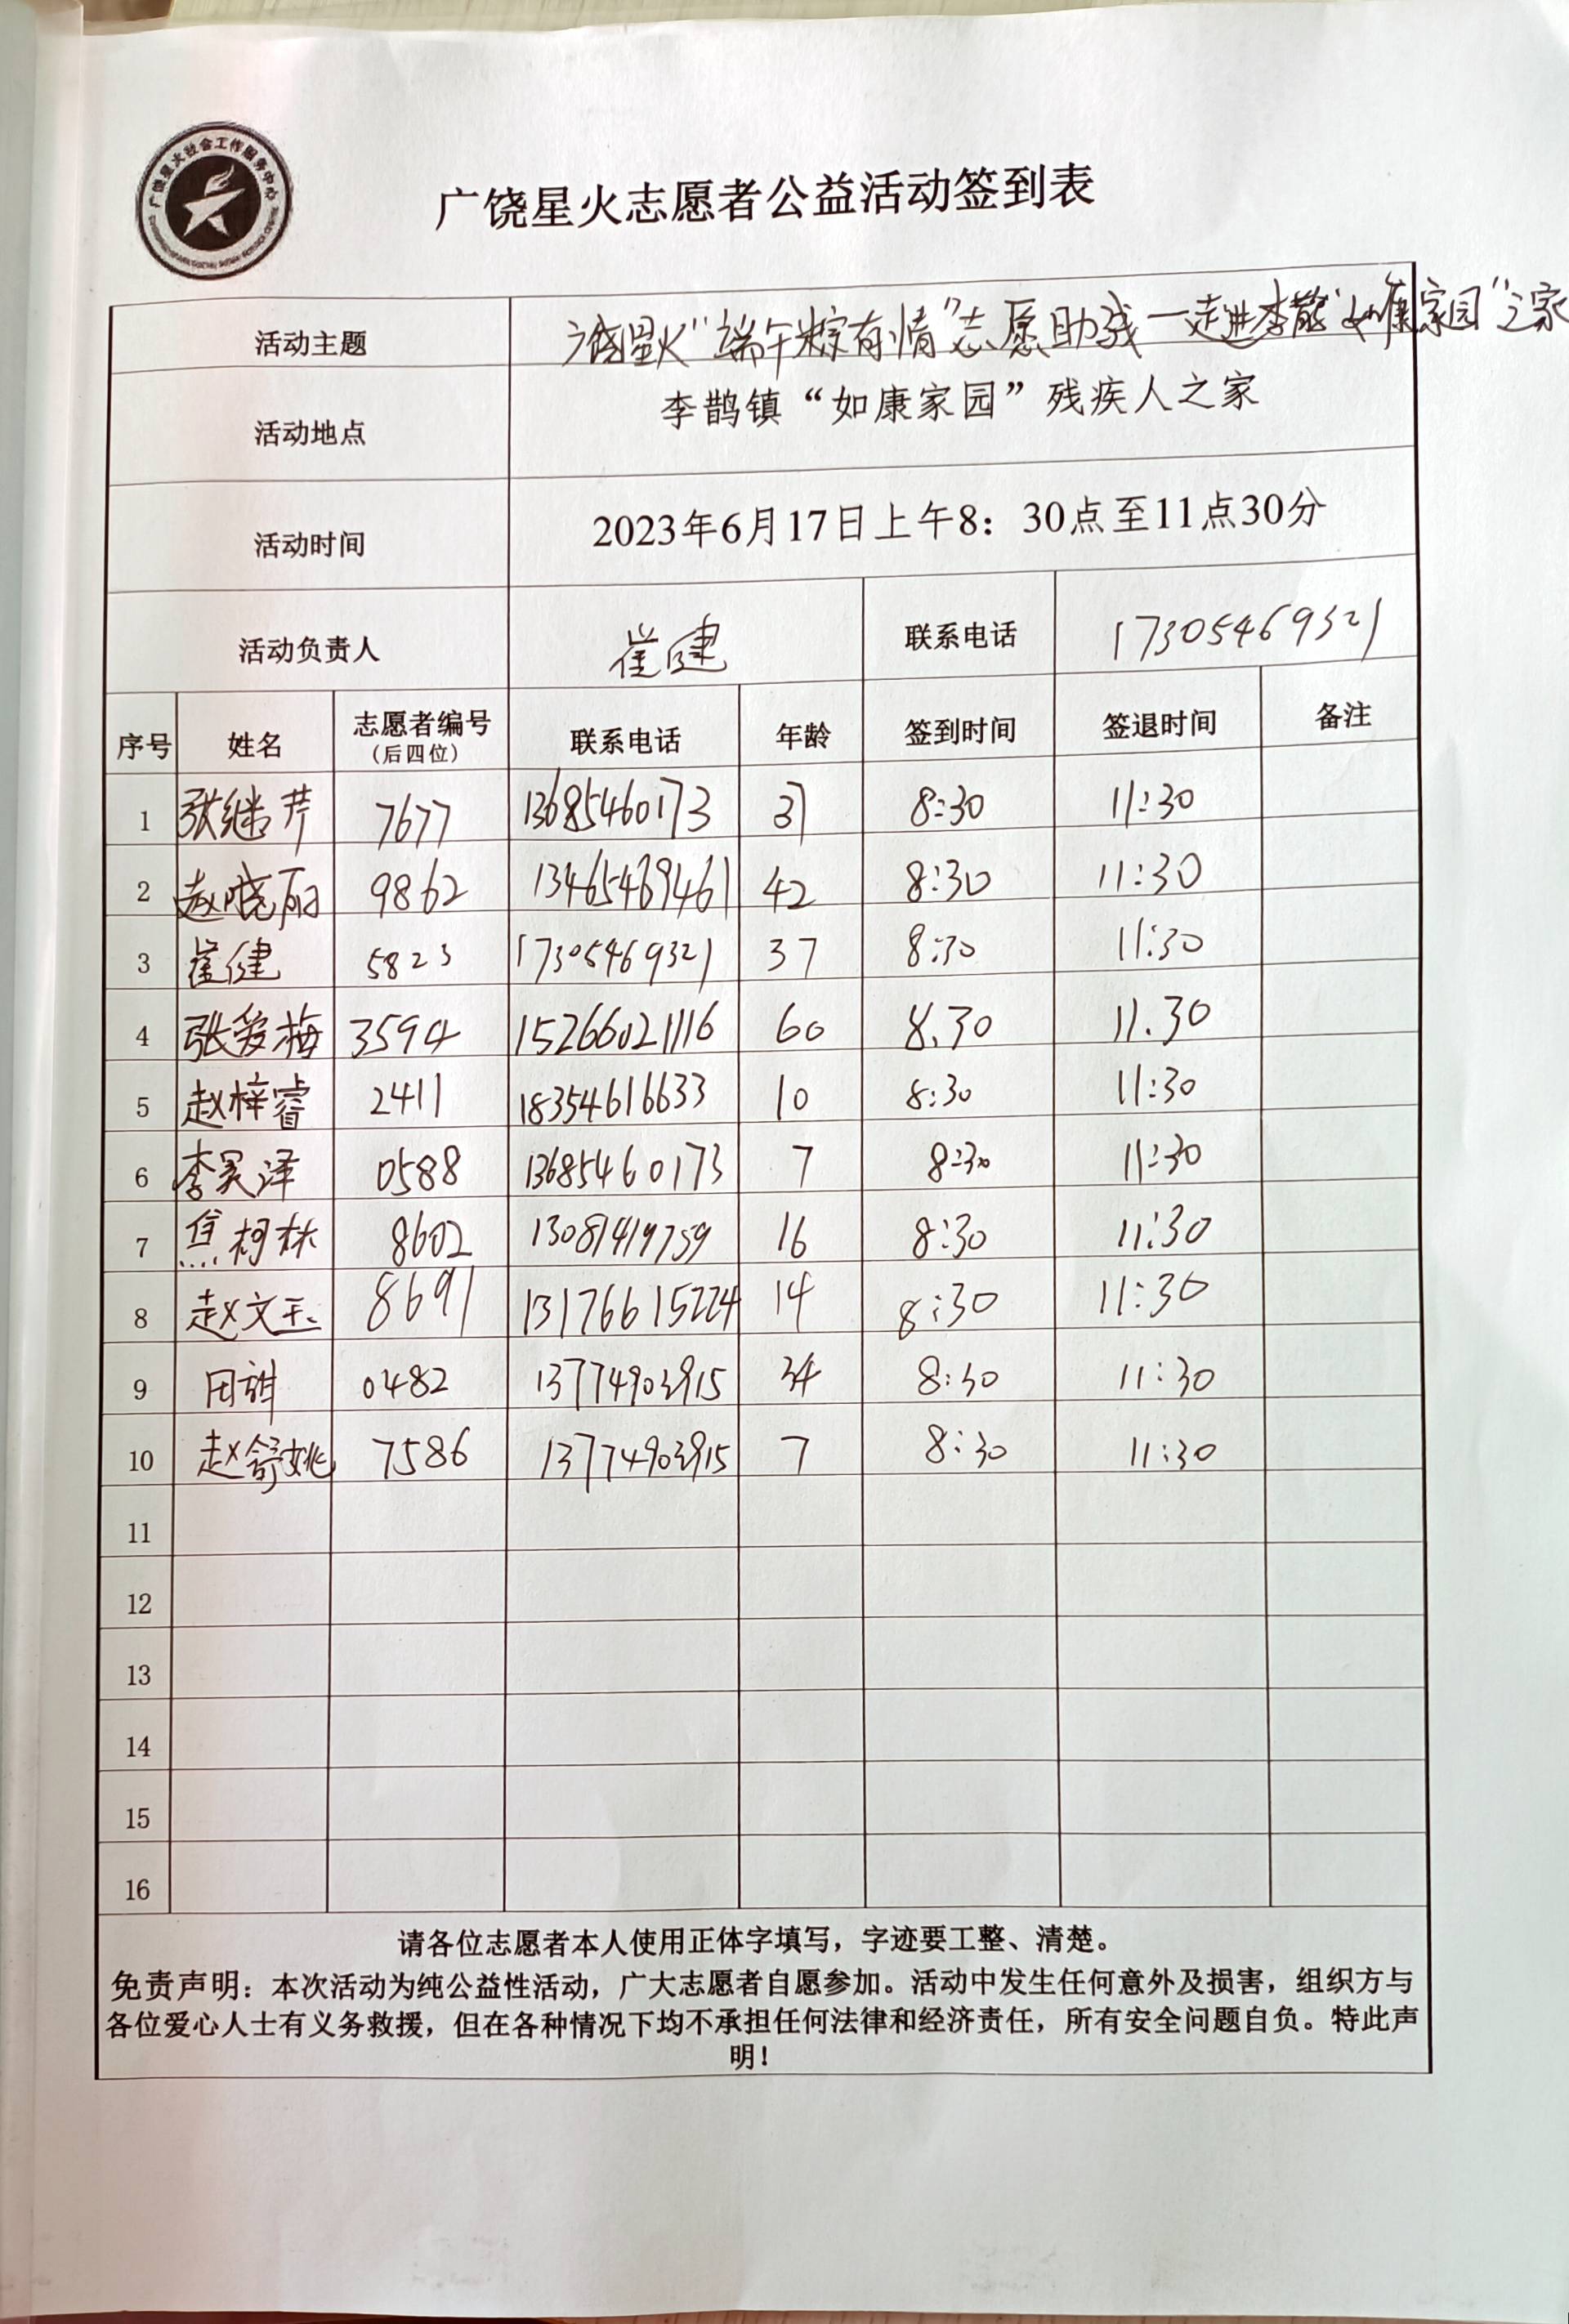 广饶星火社会工作服务中心
广饶星火志愿者公益活动签到表
活动主题 广饶星火“端午粽有情”志愿助残—走进李鹊“如康家园”之家
活动地点 李鹊镇“如康家园”残疾人之家
活动时间 2023年6月17日上午8：30点至11点30分
活动负责人 崔健 联系电话 17305469321
序号 姓名 志愿者编号（后四位） 联系电话 年龄 签到时间 签退时间 备注
1 张继芹 7677 13685460173 37 8:30 11:30
2 赵晓丽 9862 13465469461 42 8:30 11:30
3 崔健 5823 17305469321 37 8:30 11:30
4 张爱梅 3594 15266021116 60 8.30 11.30
5 赵梓睿 2411 18354616633 10 8:30 11:30
6 李昊泽 0588 13685460173 7 8:30 11:30
7 焦柯林 8602 13081419759 16 8:30 11:30
8 赵文玉 8691 13176615224 14 8:30 11:30
9 田 0482 13774903915 34 8:30 11:30
10 赵舒姚 7586 13774903915 7 8:30 11:30
11
12
13
14
15
16
请各位志愿者本人使用正体字填写，字迹要工整、清楚。
免责声明：本次活动为纯公益性活动，广大志愿者自愿参加。活动中发生任何意外及损害，组织方与
各位爱心人士有义务救援，但在各种情况下均不承担任何法律和经济责任，所有安全问题自负。特此声
明！